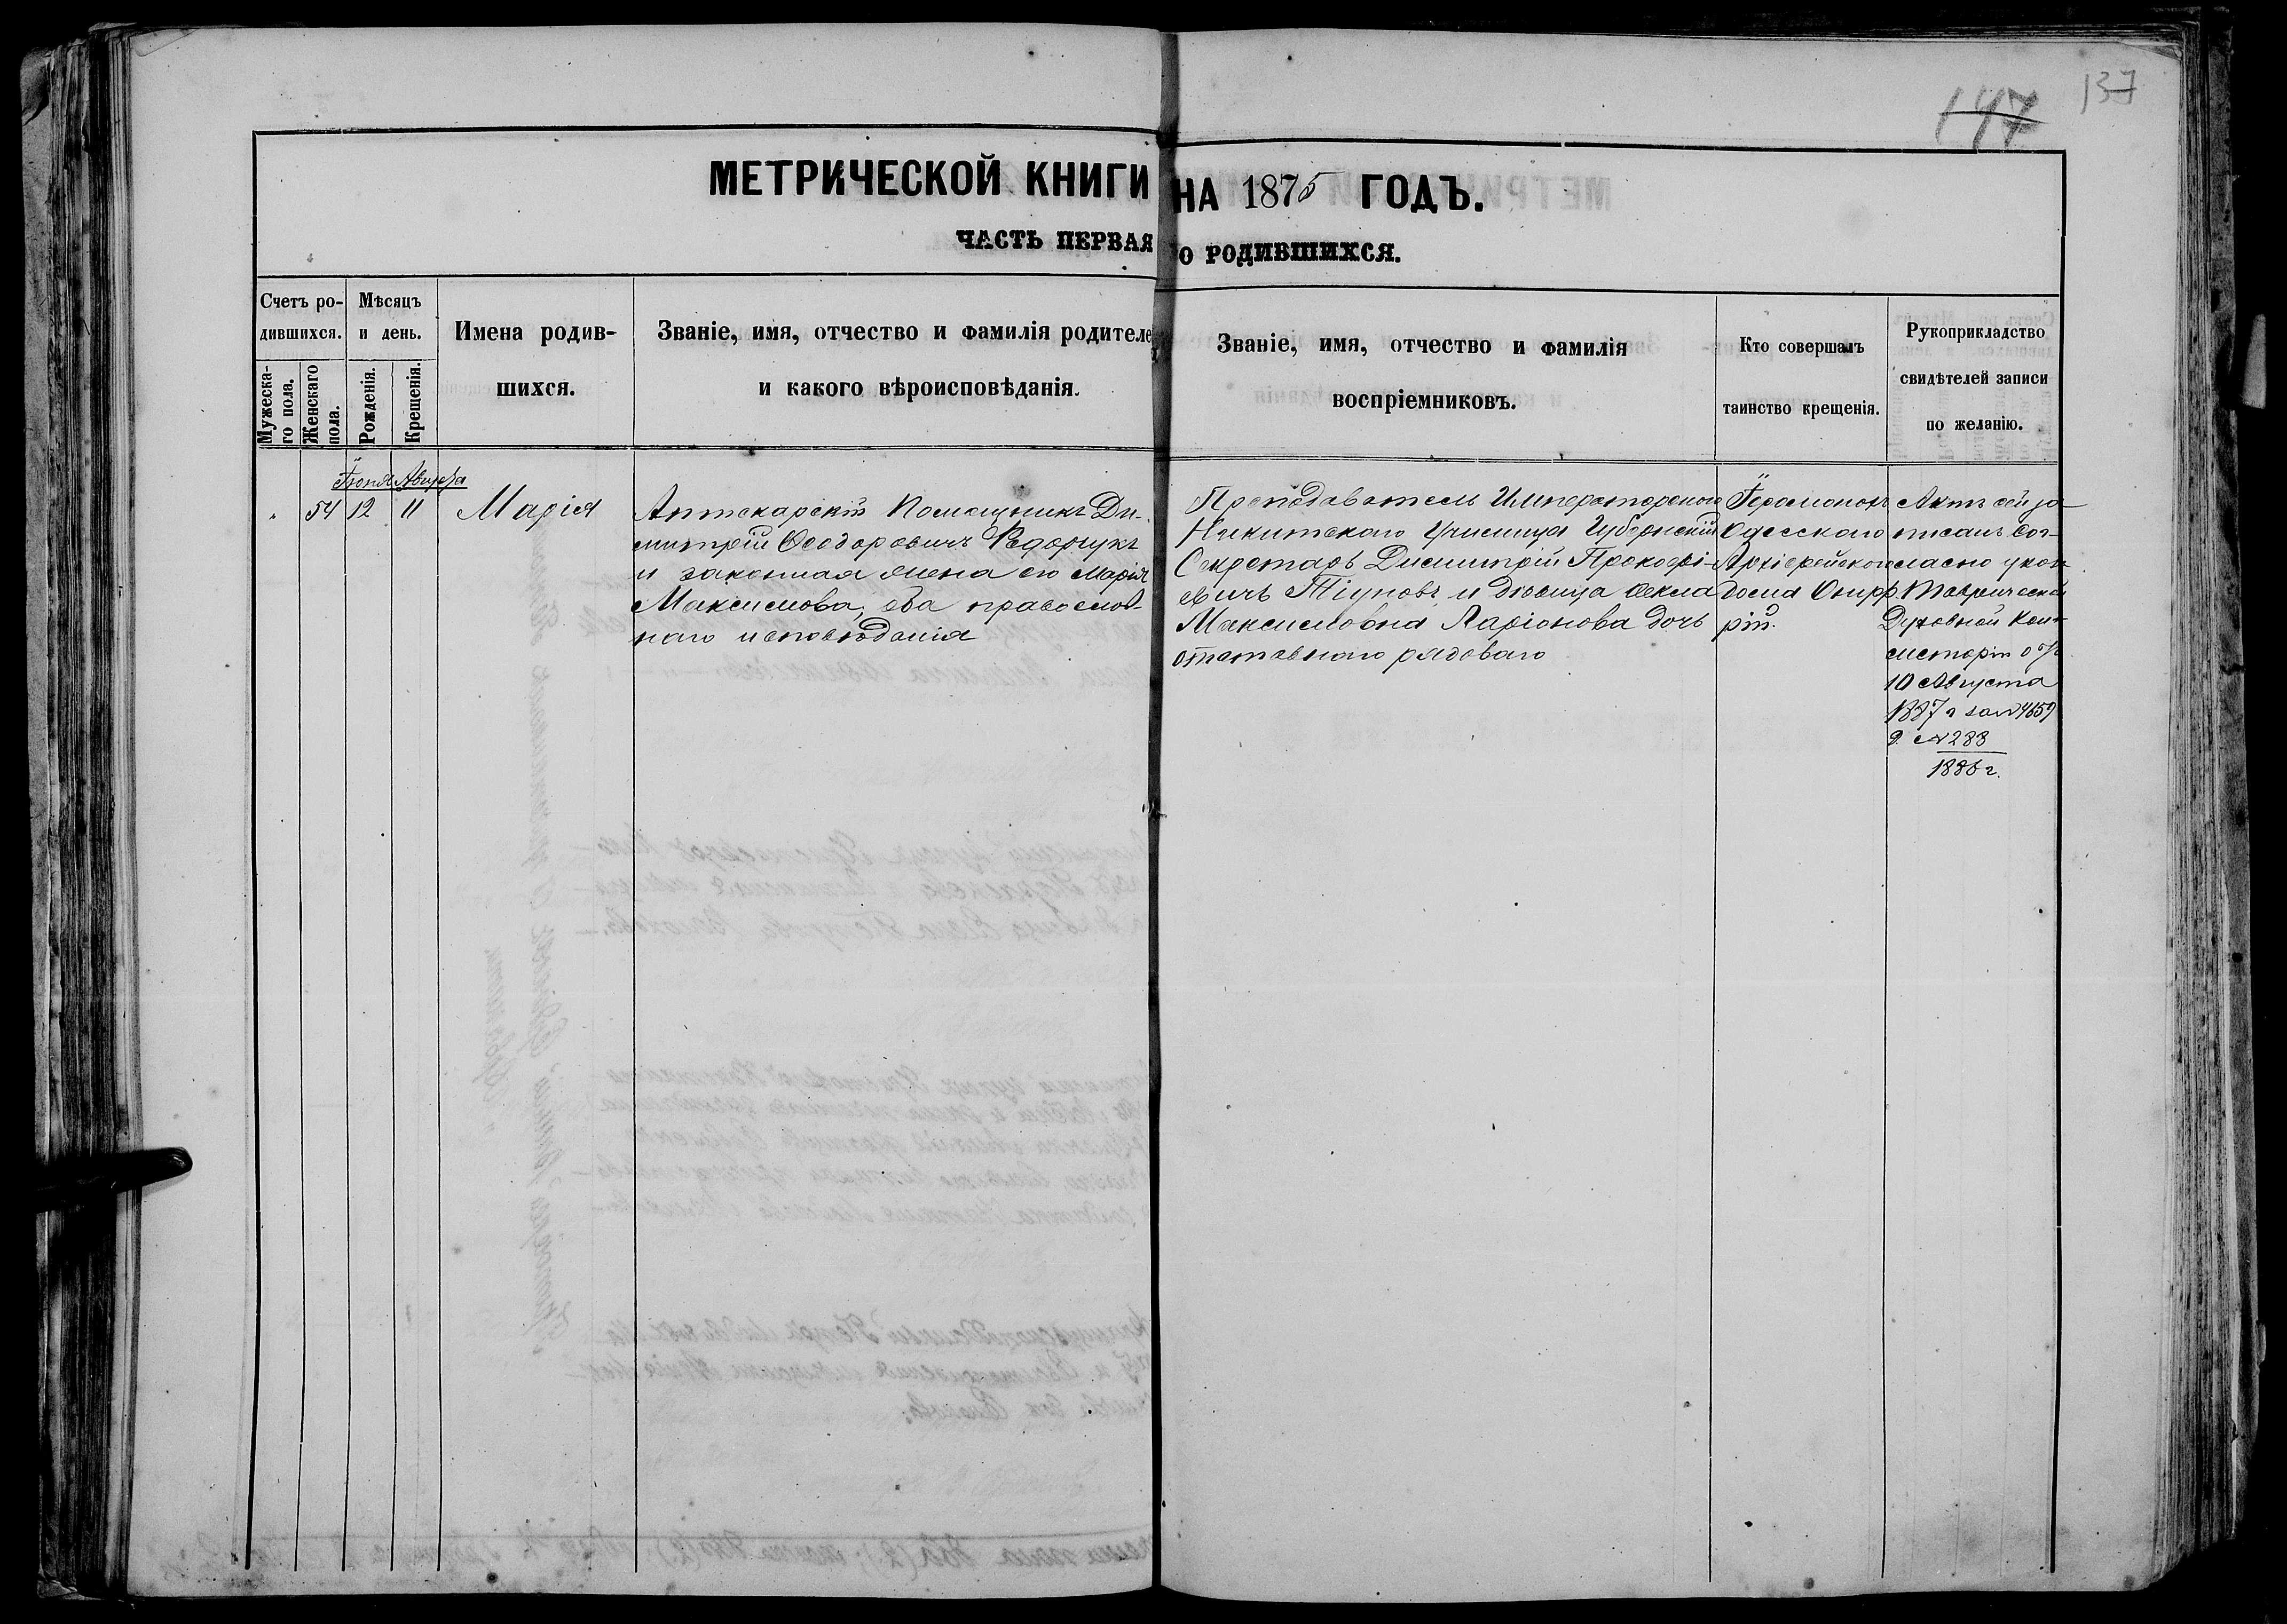 147 137
МЕТРИЧЕСКОЙ КНИГИ НА 1875 ГОДЪ.
ЧАСТЬ ПЕРВАЯ О РОДИВШИХСЯ.
Счетъ ро-
дившихся.
Мужеска-
го пола.
Женскаго
пола.
Мѣсяцъ
и день.
Рожденія.
Крещенія.
Имена родив-
шихся.
Званіе, имя, отчество и фамилія родителе
и какого вѣроисповѣданія.
Званіе, имя, отчество и фамилія
воспріемниковъ.
Кто совершалъ
таинство крещенія.
Рукоприкладство
свидѣтелей записи
по желанію.
Іюня Августа
54 12 11
Марія
Аптекарскій Помощникъ Ди-
митрій Ѳеодоровичъ Федорчукъ
и законная жена его Марія
Максимова, оба православ-
наго исповѣданія
Преподаватель Императорскаго
Никитскаго Училища Губернскій
Секретарь Димитрій Прокофі-
евичъ Тіуновъ и дѣвица Ѳекла
Максимовна Ларіонова дочь
отставнаго рядоваго
Іеромонахъ
Одесскаго
Архіерейскаго
дома Онуф-
рій.
Актъ сей за
писанъ сог-
ласно указу
Таврической
Духовной Кон-
систоріи отъ
10 Августа
1887 г за № 4659
д. № 288
1886 г.